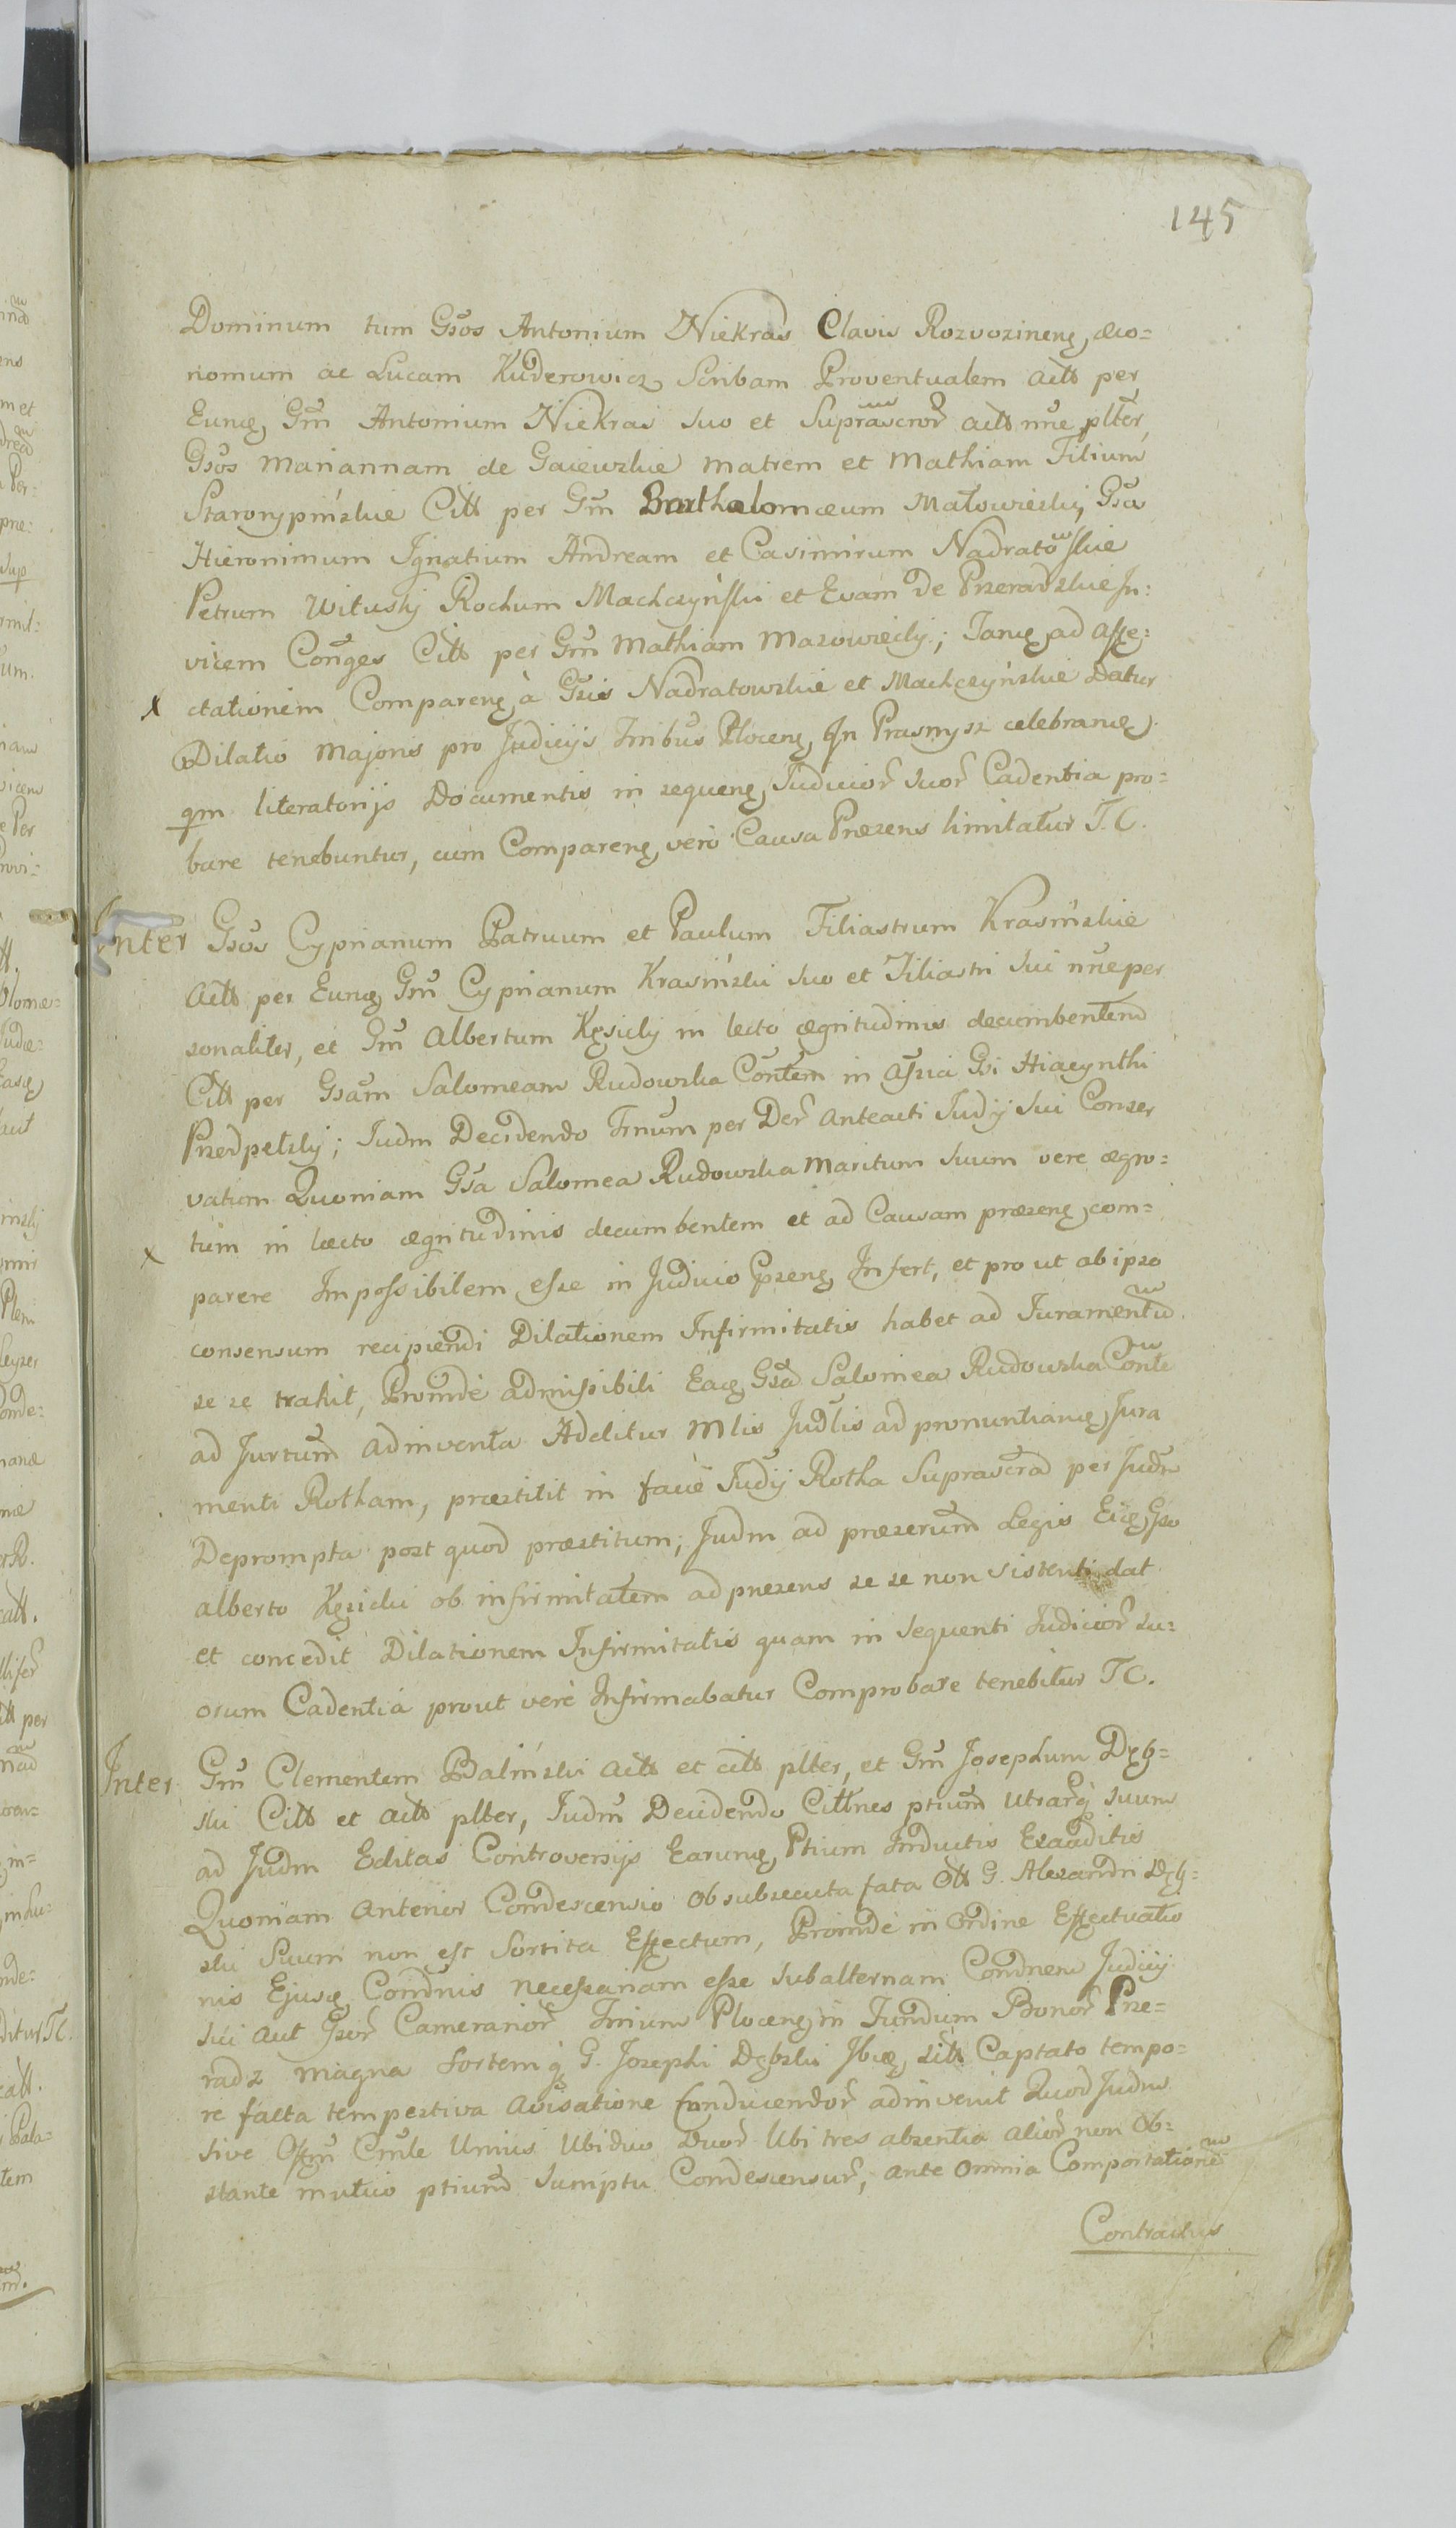 145
Dominum tum Gsos Antonium Niekras Clavis Rozvozinen, oeco=
nomum ac Lucam Kuderowicz Scribam Proventualem Actt per
Eund, Gm Antonium Niekras suo et Suprascror actt nne plter,
Gsos Mariannam de Gaiewskie matrem et Mathiam Filium
Starorypińskie Citt per Gm Bartholomæum Małowieski, Gsa
Hieronimum Ignatium Andream et Casimirum Nadratowskie
Petrum Wituskj Rochum Machczyński et Evam de Pzeradzkie In:
vicem Conges Citt per Gm Mathiam Mazowieckj; Tand, ad affe:
x ctationem Comparen, à Gsis Nadratowskie et Machczyńskie Datur
Dilatio Majoris pro Judicijs Tribus Plocen, In Prasnysz celebrand,
qm literatorijs Documentis in sequen, Judicior suor Cadentia pro=
bare tenebuntur, cum Comparen, vero Causa Præzens limitatur T.C.
Inter Gsos Cyprianum Patruum et Paulum Filiastrum Krasińskie
Actt per Eund, Gm Cyprianum Krasiński suo et Filiastri sui nne per
sonaliter, et Gm Albertum Kęsickj in lecto ægritudinis decumbentem
Citt per Gsam Salomeam Rudowska Contem in assia Gsi Hiacynthi
Przedpełskj; Judm Decidendo Trnum per Der Anteacti Judij sui Conser
vatum Quoniam Gsa Salomea Rudowska Maritum suum vere ægro=
x tum in læcto ægritudinis decumbentem et ad Causam præzen, com=
parere Impossibilem esse in Judicio Pzen, Infert, et pro ut ab ipso
consensum recipiendi Dilationem Infirmitatis habet ad Juramentu
se se trahit, Proinde admissibili Ead, Gsa Salomea Rudowska Conte
ad Jurtum adinventa Additur Mlis Judlis ad pronuntiand, Jura
menti Rotham, præstitit in facie Judij Rotha Suprascra per Judm
Deprompta post quod præstitum; Judm ad præzerum Legis Eid, Gso
Alberto Kęsicki ob infirmitatem ad præzens se se non sistenti dat
et concedit Dilationem Infirmitatis quam in sequenti Judicior su=
orum Cadentia prout vere Infirmabatur Comprobare tenebitur TC.
Inter Gm Clementem Baliński Actt et citt plter, et Gm Josephum Dęb=
ski Citt et actt plter, Judm Decidendo Cittnes ptium utrarq suum
ad Judm Editas Controversijs Earund, Ptium Inductis Exauditis
Quoniam anterior Condescensio ob subsecuta fata Ott G. Alexandri Dęb=
ski Suum non est Sortita Effectum, Proinde in ordine Effectuatio
nis Ejusd, Condnis necessariam esse subalternam Condnem Judicij
sui aut Gsor Camerarior Trium Plocen, in Fundum Bonor Prze=
radz magna Sortem q G. Josephi Dębski Ibid, sitt Captato tempo=
re facta tempestiva avisatione Conducendor adinvenit Quod Judm
sive Offm Cmle Unius Ubi duo Duor Ubi tres absentia alior non Ob=
stante mutuo ptium Sumptu Condescensur, ante omnia Comportatione
Contractus